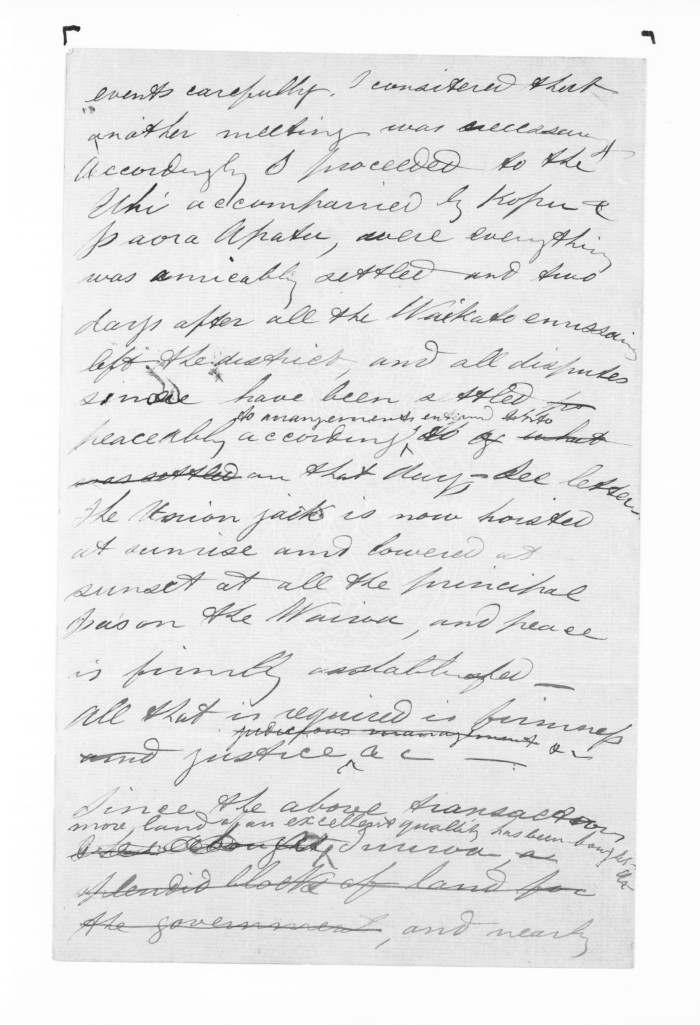 events carefully. I considered that
another meeting was necessary
Accordingly I proceeded to the
Uhi accompanied by Kopu &
Paora Apatu, were everything
was amicably settled and two
days after all the Waikato emissary
left the district, and all disputes
since have been settled to
to arrangements entered into
peaceably according to what
was settled on that day - See letter
The Union jack is now hoisted
at sunrise and lowered at
sunset at all the principal
Pas on the Wairoa, and peace
is firmly established —
All that is required is firmness
judicious management &c
and justice &c —
Since the above transaction
more land of an excellent quality has been bought
splendid blocks of land for
the government, and nearly